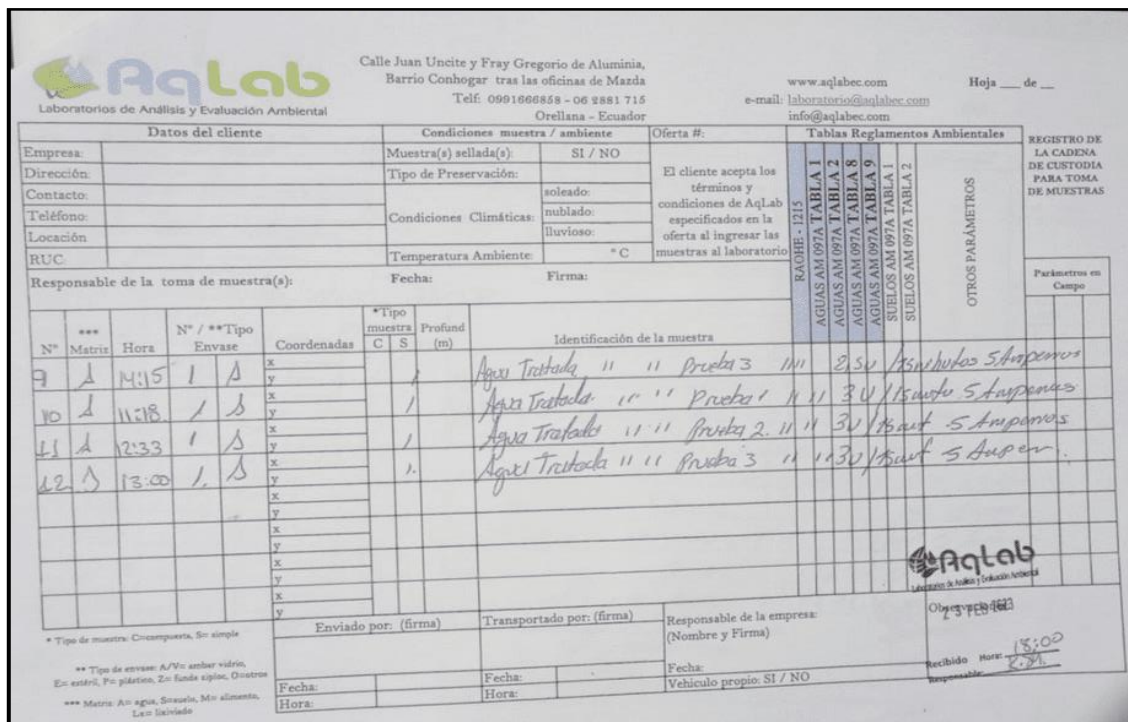 AqLab
Laboratorios de Análisis y Evaluación Ambiental
Calle Juan Uncite y Fray Gregorio de Aluminia,
Barrio Conhogar tras las oficinas de Mazda
Telf: 0991666858 - 06 2881 715
Orellana - Ecuador
www.aqlabec.com
e-mail: laboratorio@aqlabec.com
info@aqlabec.com
Hoja ___ de __
Datos del cliente
Empresa:
Dirección:
Contacto:
Teléfono:
Locación
RUC
Condiciones muestra / ambiente
Muestra(s) sellada(s): SI / NO
Tipo de Preservación:
Condiciones Climáticas: soleado:
nublado:
lluvioso:
Temperatura Ambiente: °C
Oferta #:
El cliente acepta los
términos y
condiciones de AqLab
especificados en la
oferta al ingresar las
muestras al laboratorio
Tablas Reglamentos Ambientales
RAOHE - 1215
AGUAS AM 097A TABLA 1
AGUAS AM 097A TABLA 2
AGUAS AM 097A TABLA 8
AGUAS AM 097A TABLA 9
SUELOS AM 097A TABLA 1
SUELOS AM 097A TABLA 2
OTROS PARÁMETROS
REGISTRO DE
LA CADENA
DE CUSTODIA
PARA TOMA
DE MUESTRAS
Parámetros en
Campo
Responsable de la toma de muestra(s): Fecha: Firma:
N° *** Matriz Hora N° / **Tipo Envase Coordenadas *Tipo muestra C S Profund (m) Identificación de la muestra
9 A 14:15 1 x y / Agua Tratada " " Prueba 3 " " 5 Amperios
10 A 11:18 1 x y / Agua Tratada " " Prueba 1 " " 3 V / 5 Amperios
11 A 12:33 1 x y / Agua Tratada " " Prueba 2. " " 3V / 5 Amperios
12 A 13:00 1. x y /. Agua Tratada " " Prueba 3 " " 3V / 5 Amper.
x
y
x
y
x
y
x
y
* Tipo de muestra: C=compuesta, S= simple
** Tipo de envase: A/V= ambar vidrio,
E= estéril, P= plástico, Z= funda ziploc, O=otros
*** Matriz: A= agua, S=suelo, M= alimento,
Lx= lixiviado
Enviado por: (firma)
Fecha:
Hora:
Transportado por: (firma)
Fecha:
Hora:
Responsable de la empresa:
(Nombre y Firma)
Fecha:
Vehiculo propio: SI / NO
AqLab
Laboratorios de Análisis y Evaluación Ambiental
23 FEB
Recibido Hora: 18:00
Responsable: